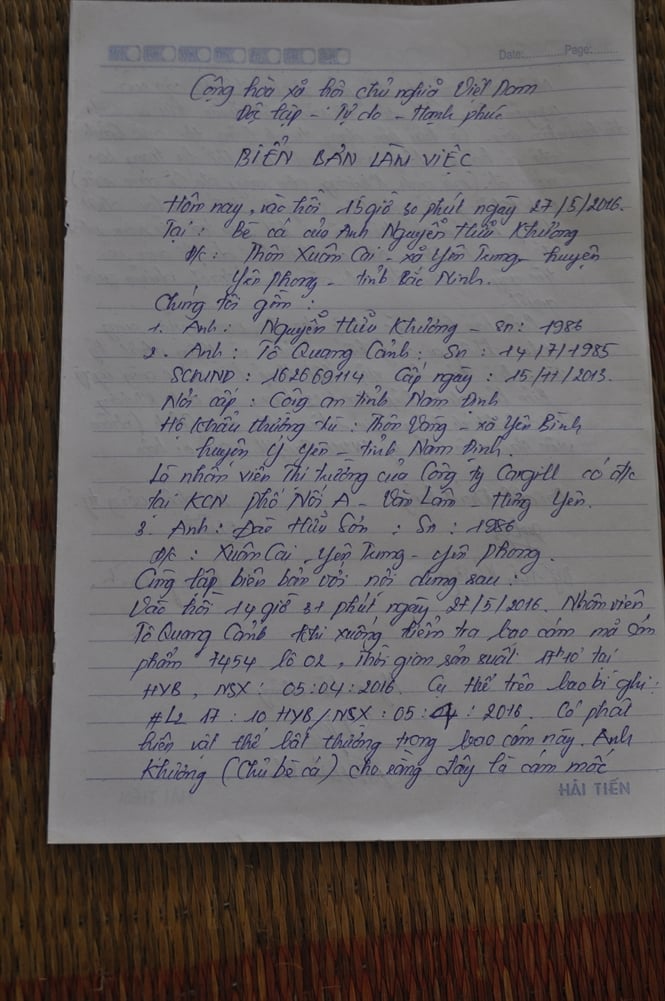 Date:............Page:........
Cộng hòa xã hội chủ nghĩa Việt Nam
Độc lập - Tự do - Hạnh phúc
BIÊN BẢN LÀM VIỆC
Hôm nay, vào hồi 15 giờ 30 phút ngày 27/5/2016.
Tại : Bè cá của Anh Nguyễn Hữu Khương
Đ/c : Thôn Xuân Cai - xã Yên Trung - huyện
Yên Phong - tỉnh Bắc Ninh.
Chúng tôi gồm :
1. Anh : Nguyễn Hữu Khương - Sn : 1986
2. Anh : Tô Quang Cảnh : Sn : 14/7/1985
SCMND : 162669114 Cấp ngày : 15/11/2013.
Nơi cấp : Công an tỉnh Nam Định
Hộ khẩu thường trú : Thôn Vàng - xã Yên Bình
huyện Ý Yên - tỉnh Nam Định.
Là nhân viên Thị trường của Công ty Cargill có đ/c
tại KCN phố Nối A - Văn Lâm - Hưng Yên.
3. Anh : Đào Hữu Sơn : Sn : 1986
Đ/c : Xuân Cai, Yên Trung - Yên Phong.
Cùng lập biên bản với nội dung sau :
Vào hồi 14 giờ 31 phút ngày 27/5/2016. Nhân viên
Tô Quang Cảnh khi xuống kiểm tra bao cám mã sản
phẩm 7454 lô 02, Thời gian sản suất 17h10' tại
HYB, NSX : 05:04:2016. Cụ thể trên bao bì ghi :
#L2 17 : 10 HYB/NSX : 05 : 4 : 2016. Có phát
hiện vật thể bất thường trong bao cám này. Anh
Khương (Chủ bè cá) cho rằng đây là cám mốc
HẢI TIẾN